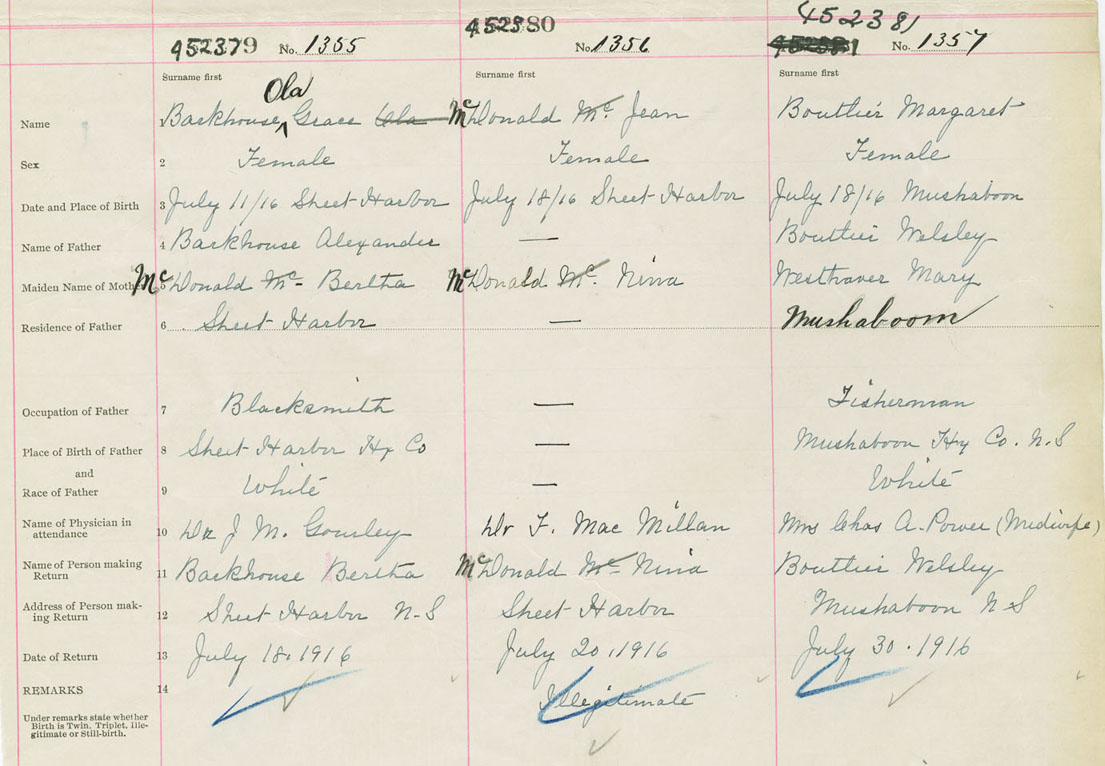 452379 No. 1355 452380 No. 1356 452381 No. 1357
Surname first Surname first Surname first
Name 1 Backhouse, Ola Grace Ola McDonald Mc Jean Bouttier Margaret
Sex 2 Female Female Female
Date and Place of Birth 3 July 11/16 Sheet Harbor July 18/16 Sheet Harbor July 18/16 Mushaboon
Name of Father 4 Backhouse Alexander — Bouttier Welsley
Maiden Name of Mother 5 McDonald Mc Bertha McDonald Mc. Nina Westhaver Mary
Residence of Father 6 Sheet Harbor — Mushaboom
Occupation of Father 7 Blacksmith — Fisherman
Place of Birth of Father 8 Sheet Harbor Hx Co — Mushaboon Hx Co. N.S
and
Race of Father 9 White — White
Name of Physician in
attendance 10 Dr J M. Gourley Dr F. Mac Millan Mrs Chas A. Power (Midwife)
Name of Person making
Return 11 Backhouse Bertha McDonald Mc Nina Bouttier Welsley
Address of Person mak-
ing Return 12 Sheet Harbor N-S Sheet Harbor Mushaboon N S
Date of Return 13 July 18. 1916 July 20, 1916 July 30. 1916
REMARKS 14 Illegitimate
Under remarks state whether
Birth is Twin, Triplet, Ille-
gitimate or Still-birth.